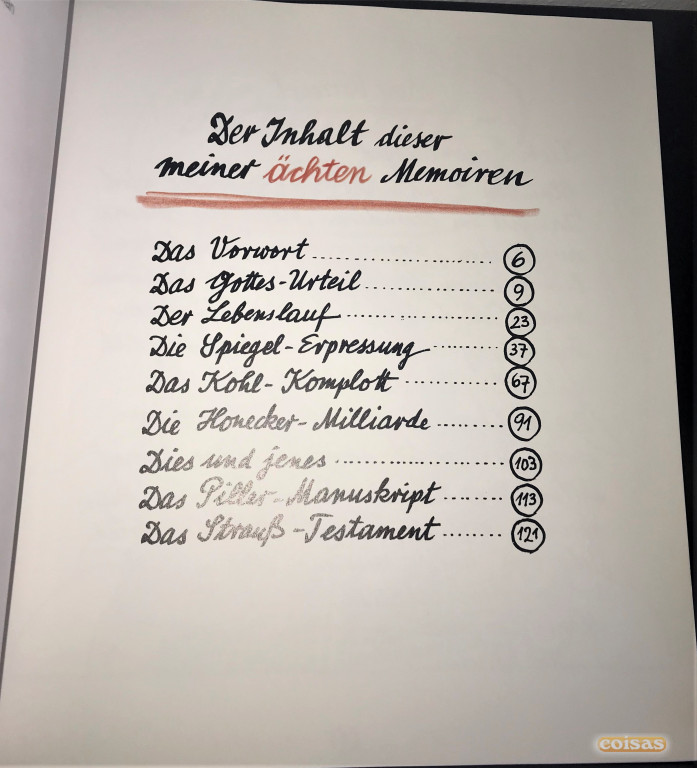 Der Inhalt dieser
meiner ächten Memoiren
Das Vorwort .......................... 6
Das Gottes-Urteil .................... 9
Der Lebenslauf ....................... 23
Die Spiegel-Erpressung .......... 37
Das Kohl-Komplott ............... 67
Die Honecker-Milliarde .......... 91
Dies und jenes ....................... 103
Das Piller-Manuskript ......... 113
Das Strauß-Testament ........ 121
coisas